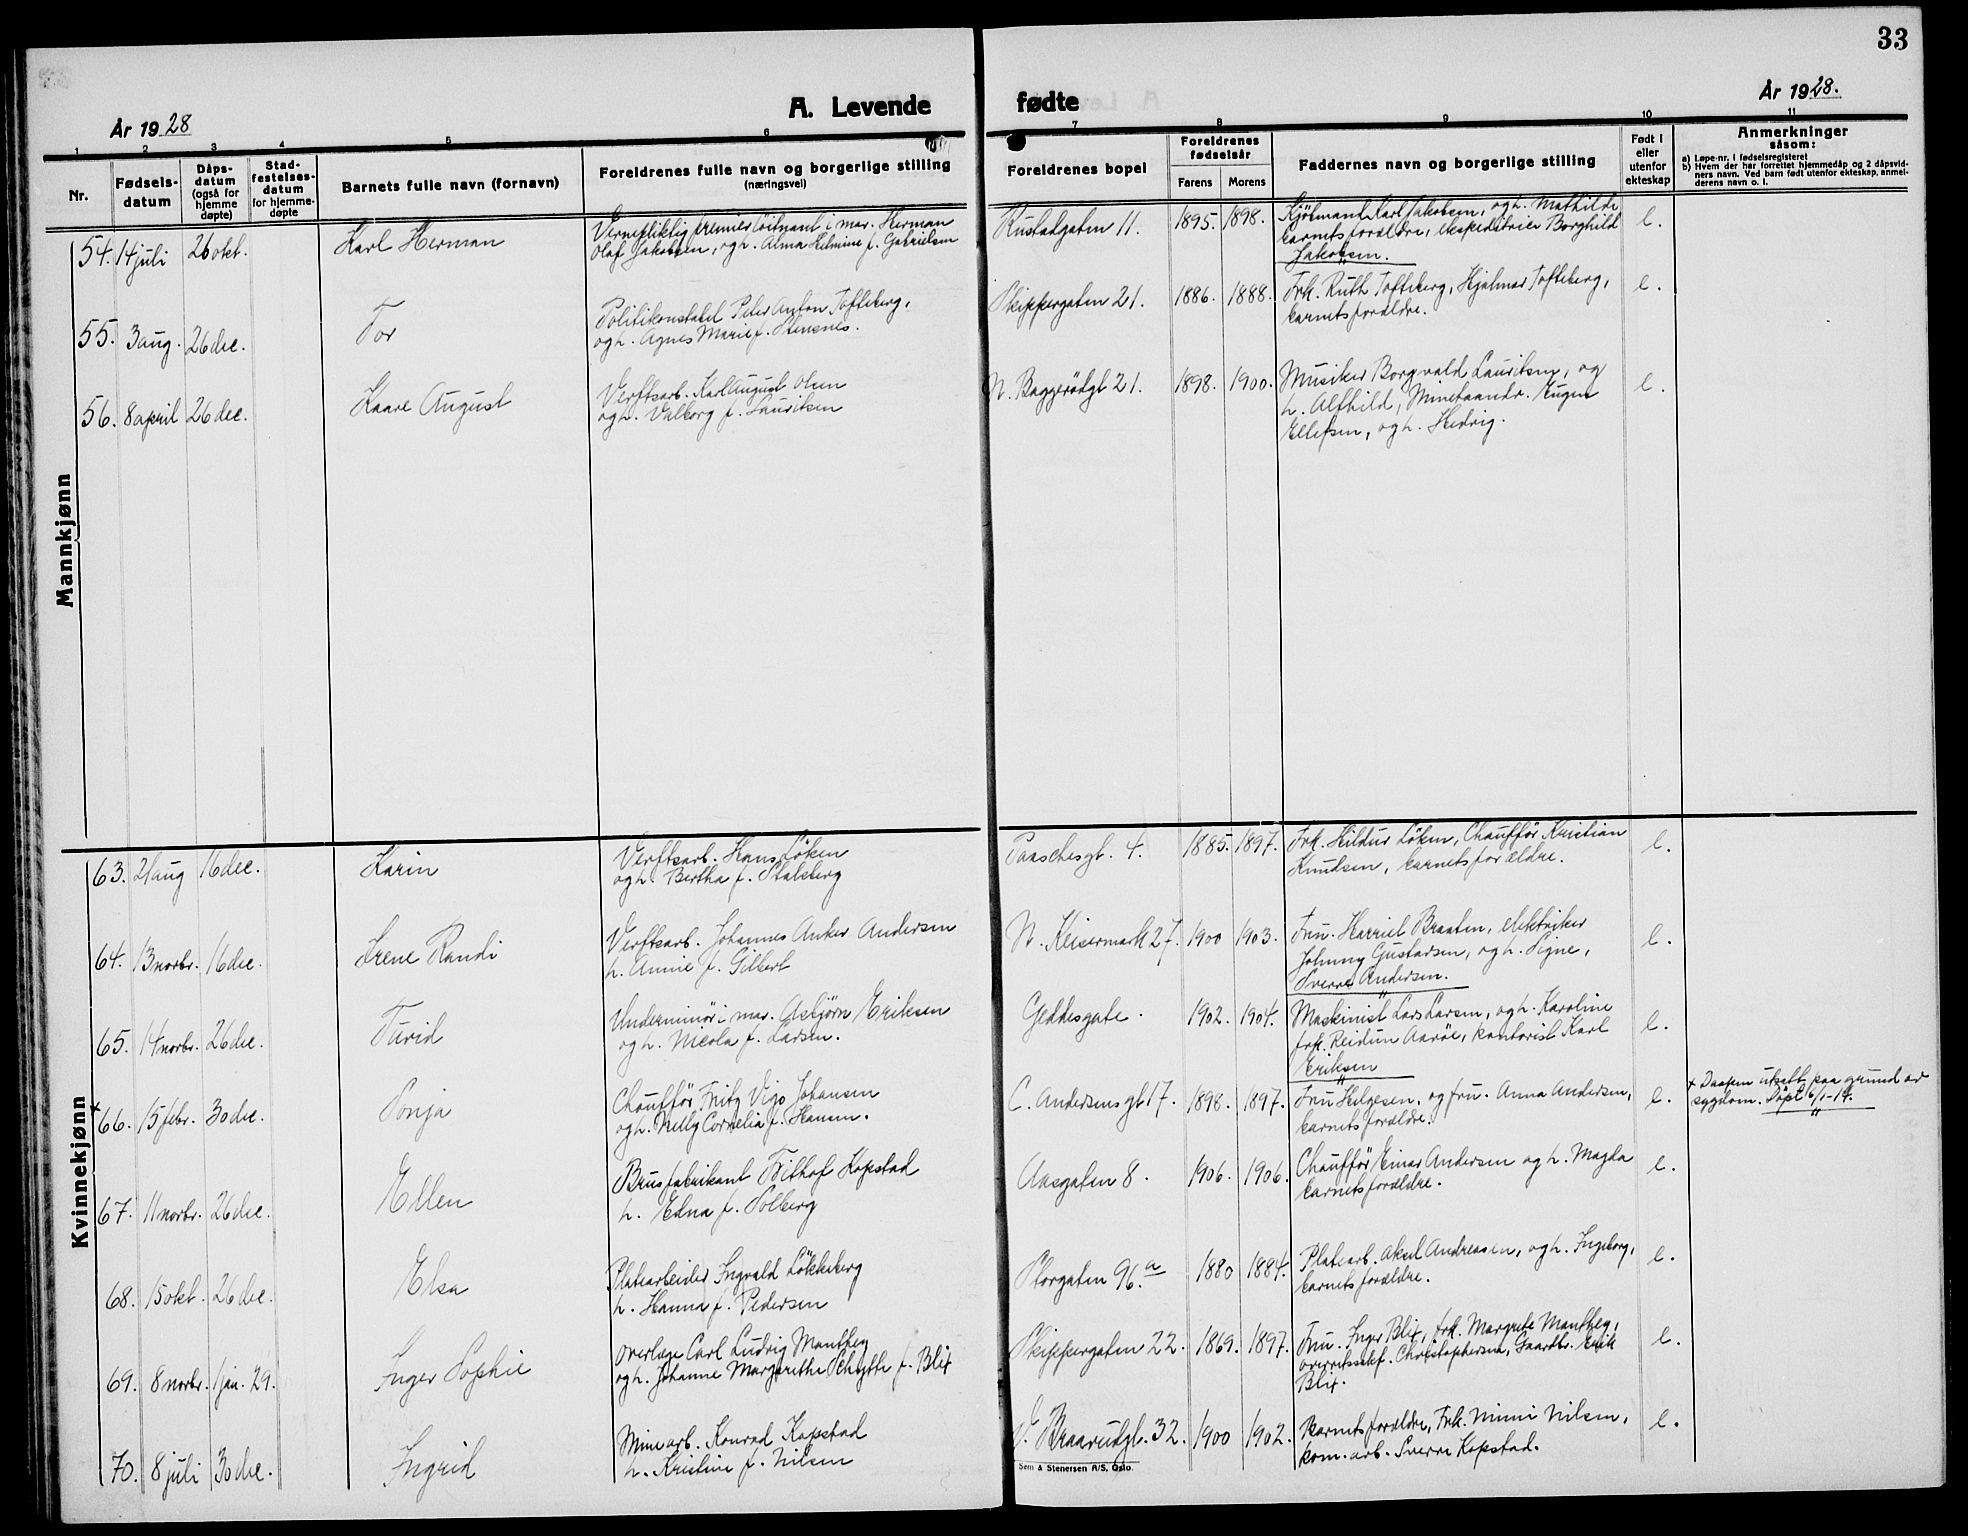 33
År 1928
A. Levende
fødte
År 1928.
1 2 3 4 5 6 7 8 9 10 11
Nr.
Fødsels-
datum
Dåps-
datum
(også for
hjemme
døpte)
Stad-
festelses-
datum
for hjemme-
døpte
Barnets fulle navn (fornavn)
Foreldrenes fulle navn og borgerlige stilling
(næringsvei)
Foreldrenes bopel
Foreldrenes
fødselsår
Farens Morens
Faddernes navn og borgerlige stilling
Født i
eller
utenfor
ekteskap
Anmerkninger
såsom:
a) Løpe-nr. i fødselsregisteret
b) Hvem der har forrettet hjemmedåp og 2 dåpsvid-
ners navn. Ved barn født utenfor ekteskap, anmel-
derens navn o. l.
Mannkjønn
54. 14 juli 26 okt. Karl Herman
Vernepliktig premierløitnant i mar. Herman
Olaf Jakobsen, og h. Alma Helmine f. Gabrielsen
Rustadgaten 11. 1895. 1898.
Kjøbmand Karl Jakobsen, og h. Mathilde
barnets forældre, ekspeditrice Borghild
Jakobsen.
e.
55. 3 aug. 26 dec. Tor
Politikonstabel Peter Anton Tofteberg,
og h. Agnes Marie f. Stensnes.
Skippergaten 21. 1886. 1888.
Frk. Ruth Tofteberg, Hjalmar Tofteberg,
barnets forældre.
e.
56. 8 april 26 dec. Kaare August
Verftsarb. Karl August Olsen
og h. Valborg f. Lauritsen
N. Baggerødgt 21. 1898. 1900.
Musiker Borgvald Lauritsen, og
h. Alfhild, Minekaandv. Eugen
Ellefsen, og h. Hedvig.
e.
Kvinnekjønn
63. 21 aug 16 dec. Karin
Verftsarb. Hans Løken
og h. Bertha f. Stalsberg
Paaschesgt. 4. 1885. 1897.
Frk. Hildur Løken, Chauffør Kristian
Knudsen, barnets forældre.
e.
64. 13 novbr. 16 dec. Irene Randi
Verftsarb. Johannes Anker Andersen
h. Annie f. Gilbert
N. Keisermark 27. 1900 1903.
Fru. Harriet Braaten, elektriker
Johnny Gustavsen, og h. Signe,
Sverre Andersen.
e.
65. 14 novbr. 26 dec. Turid
Underminør i mar. Asbjørn Eriksen
og h. Nicola f. Larsen.
Geddesgate. 1902. 1904.
Maskinist Lars Larsen, og h. Karoline
frk. Reidun Aarøe, kontorist Karl
Eriksen
e.
x
66. 15 febr. 30 dec. Sonja
Chauffør Fritz Vigo Johansen
og h. Nelly Cornelia f. Hansen.
C. Andersens gt 17. 1898. 1897.
Fru Helgesen, og fru. Anna Andersen,
barnets forældre.
e.
x Daapen utsatt paa grund av
sygdom. Døpt 6/1-14.
67. 11 novbr. 26 dec. Ellen
Brusfabrikant Frithof Kopstad
h. Edna f. Solberg
Aasgaten 8. 1906. 1906.
Chauffør Einar Andersen og h. Magda
barnets forældre.
e.
68. 15 okt. 26 dec. Elsa
Platearbeider Ingvald Løkkeberg
h. Hanna f. Pedersen
Storgaten 96. a 1880 1884.
Platearb. Aksel Andreasen, og h. Ingeborg,
barnets forældre.
e.
69. 8 novbr. 1 jan. 29. Inger Sophie
Overlæge Carl Ludvig Manthey
og h. Johanne Margrethe Schøth f. Blix
Skippergaten 22. 1869. 1897.
Fru. Inger Blix, frk. Margrete Manthey,
overretssakf. Christophersen, Gaardbr. Erik
Blix.
e.
70. 8 juli 30 dec. Ingrid
Minearb. Konrad Kopstad
h. Kristine f. Nilsen
V. Braarudgt. 32. 1900 1902.
Barnets forældre, Frk. Mimi Nilsen,
kom. arb. Sverre Kopstad.
e.
Sem & Stenersen A/S, Oslo.